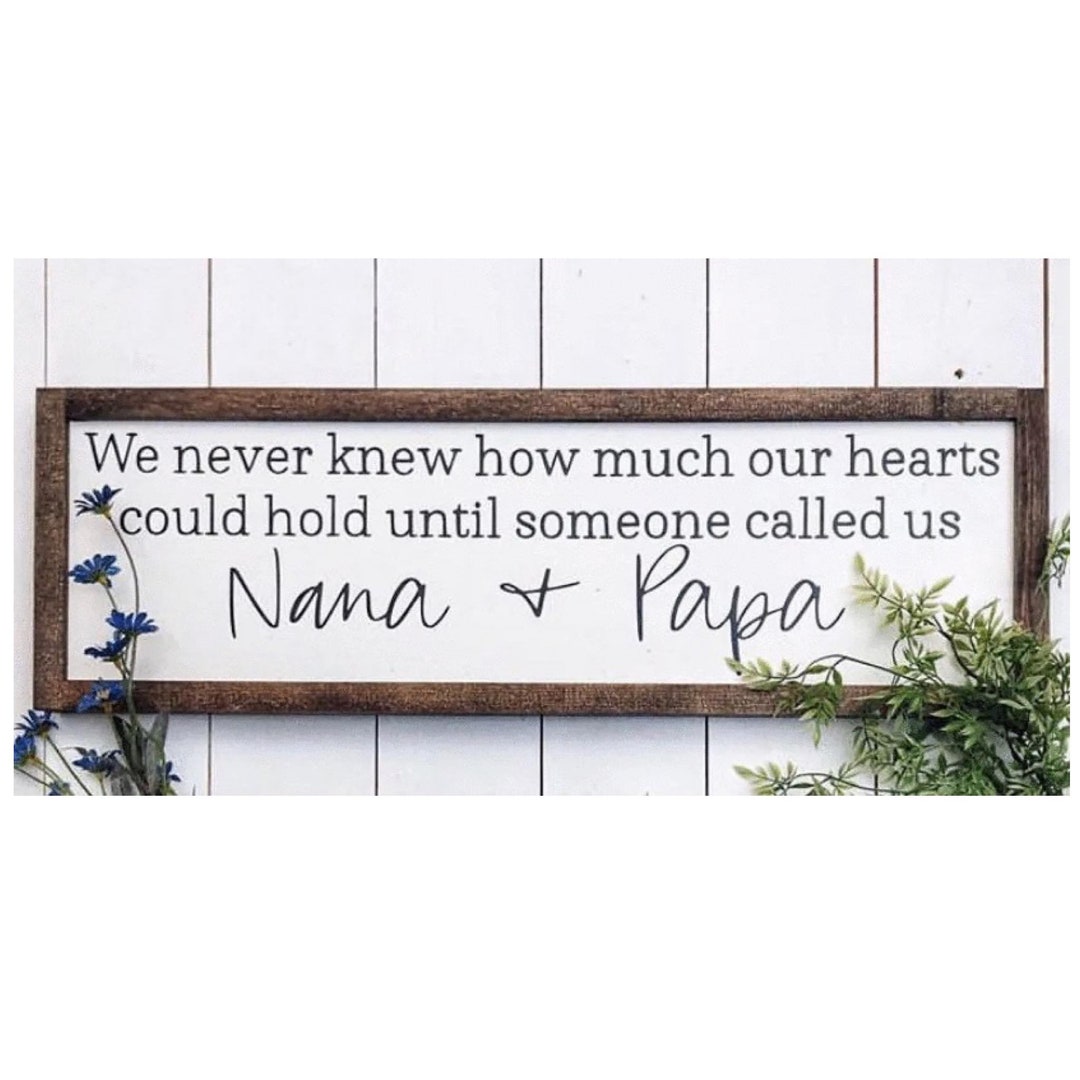 We never knew how much our hearts
could hold until someone called us
Nana + Papa